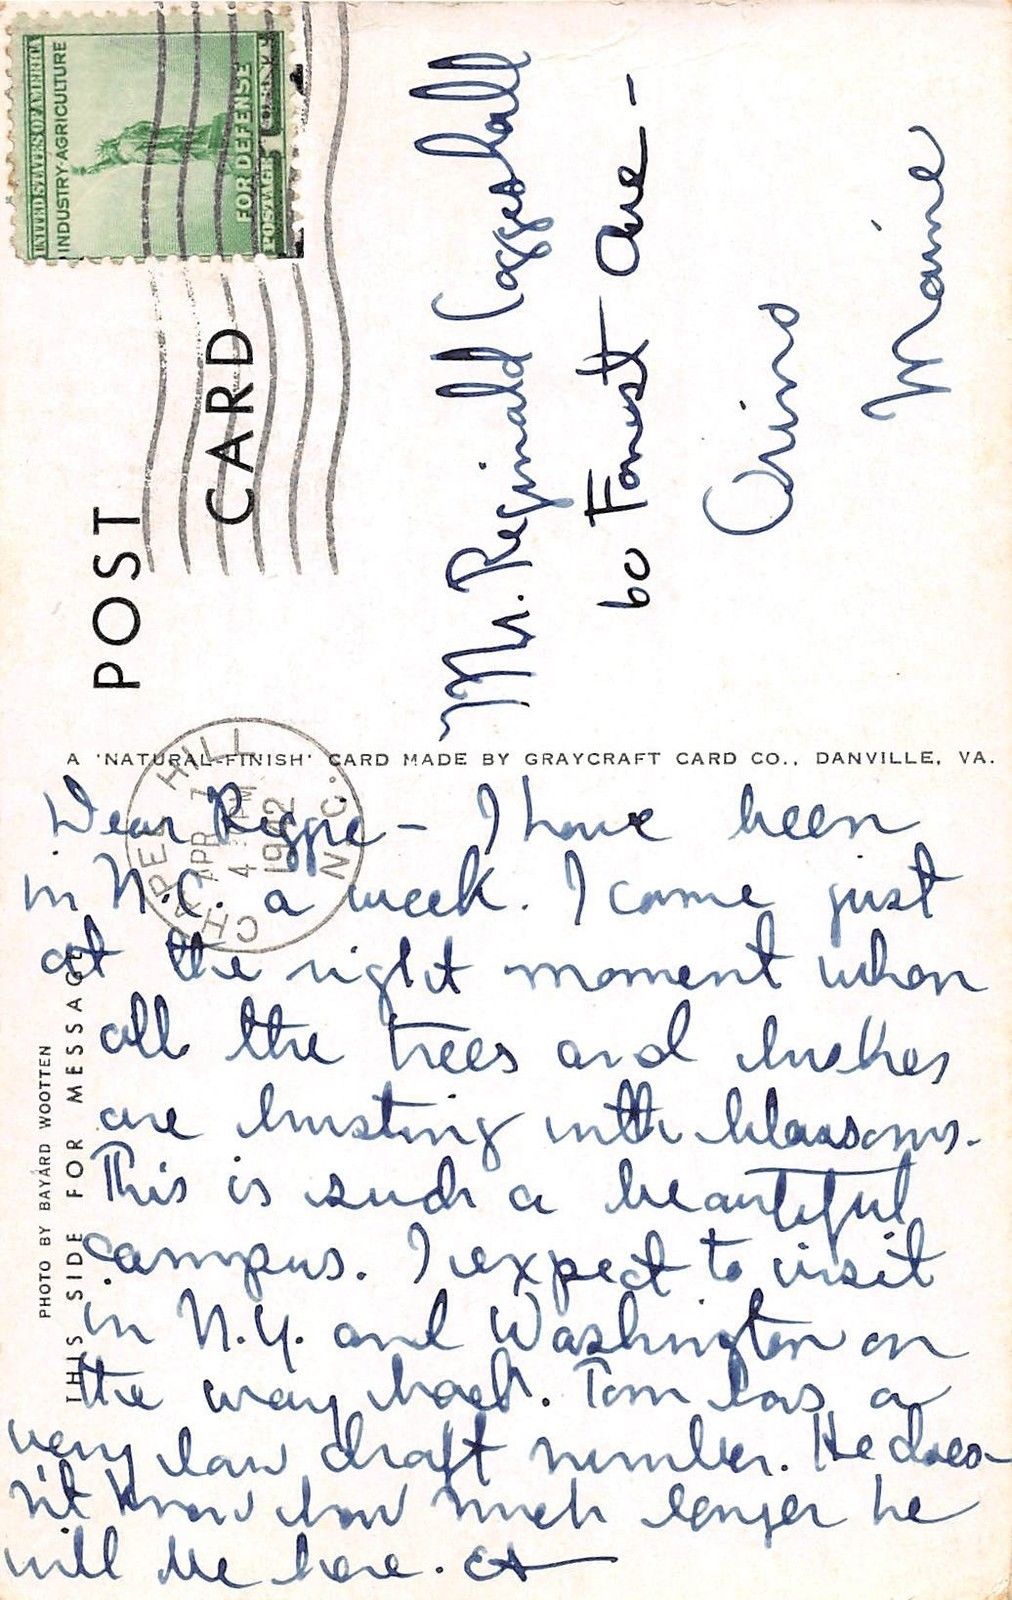 UNITED STATES OF AMERICA
INDUSTRY AGRICULTURE
FOR DEFENSE
POSTAGE 1 CENT
POST
CARD
CHAPEL HILL
APR 7
4 PM
1942
N.C.
Mr. Reginald Coggeshall
60 Forest Ave -
Orono
Maine
A 'NATURAL-FINISH' CARD MADE BY GRAYCRAFT CARD CO., DANVILLE, VA.
PHOTO BY BAYARD WOOTTEN
THIS SIDE FOR MESSAGE
Dear Reggie - I have been
in N.C. a week. I came just
at the right moment when
all the trees and bushes
are busting with blossoms.
This is such a beautiful
campus. I expect to visit
in N.Y. and Washington on
the way back. Tom has a
very low draft number. He does-
n't know how much longer he
will be here.